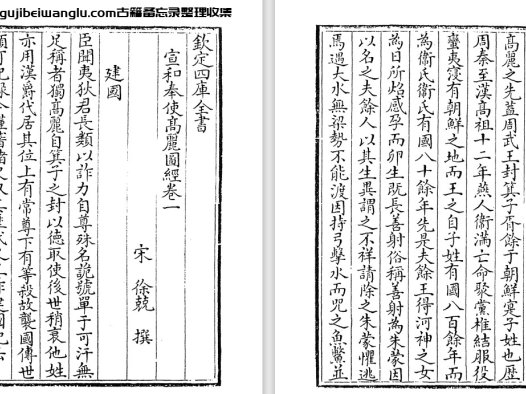 gujibeiwanglu.com古籍备忘录整理收集
欽定四庫全書
宣和奉使高麗圖經卷一
宋 徐兢 撰
建國
臣聞夷狄君長類以詐力自尊殊名詭號單于可汗無
足稱者獨高麗自箕子之封以德取侯後世稍衰他姓
亦用漢爵代居其位上有常尊下有等殺故襲國傳世
高麗之先葢周武王封箕子胥餘於朝鮮寔子姓也歷
周秦至漢高祖十二年燕人衛滿亡命聚黨椎結服役
蠻夷寖有朝鮮之地而王之自子姓有國八百餘年而
為衛氏衛氏有國八十餘年先是夫餘王得河神之女
為日所炤感孕而卵生既長善射俗稱善射為朱蒙因
以名之夫餘人以其生異謂之不祥請除之朱蒙懼逃
焉遇大水無梁勢不能渡因持弓擊水而咒之魚鼈並